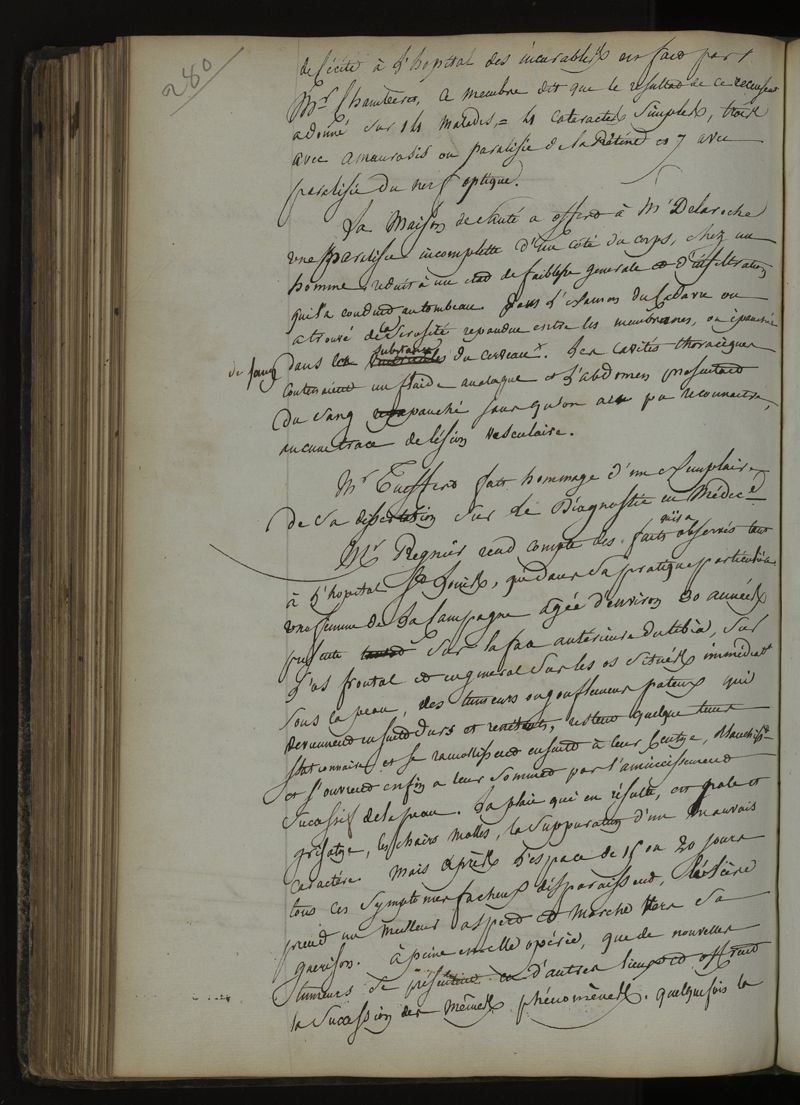 280
de Cécité à l'hopital des incurables en fait part
Mr Chamseru, a membre dit que le resultat de ce recensement
a donné sur 14 malades, = 4 cataractes simples, trois
avec amaurosis ou paralisie de la Rétine et 7 avec
paralisie du nerf optique.
La Maison de Santé a offert à Mr Delaroche
une paralisie incomplette d'un coté du corps, chez un
homme reduit à un etat de faiblesse generale et d'infiltration
qui l'a conduit au tombeau. Dans l'examen du Cadavre on
a trouvé de la Serosité repandue entre les membranes, ou épanchée
dans la substance du cerveau. Les cavités thoraciques
du sang
contenaient un fluide analogue et l'abdomen presentait
du Sang epanché sans qu'on ait pu reconnaitre,
aucune trace de lésion vasculaire.
Mr Tueffert fait hommage d'un exemplaire
de sa dissertation sur le Diagnostic en Médecine
Mr Regnier rend compte des faits observés tant
à l'hopital St Louis, que dans sa pratique particulière
une femme de la Campagne agée d'environ 30 années
presente sur la face antérieure du tibia, sur
l'os frontal et en general sur les os situés immédiatt
sous la peau, des tumeurs ou gonflemens pateux qui
deviennent ensuite durs et renitents, restent quelque tems
stationnaires et se ramollissent ensuite à leur centre, blanchissent
et s'ouvrent enfin a leur sommet par l'amincissement
successif de la peau. La plaie qui en résulte, est pale et
grisatre, les chairs molles, la suppuration d'un mauvais
caractère. Mais après l'espace de 15 ou 20 jours
tous ces symptomes facheux disparaissent, l'ulcère
prend un meilleur aspect et marche vers sa
guerison. à peine est-elle opérée, que de nouvelles
tumeurs se présentent en d'autres lieux et offrent
la succession des mêmes phénomènes. quelquefois la